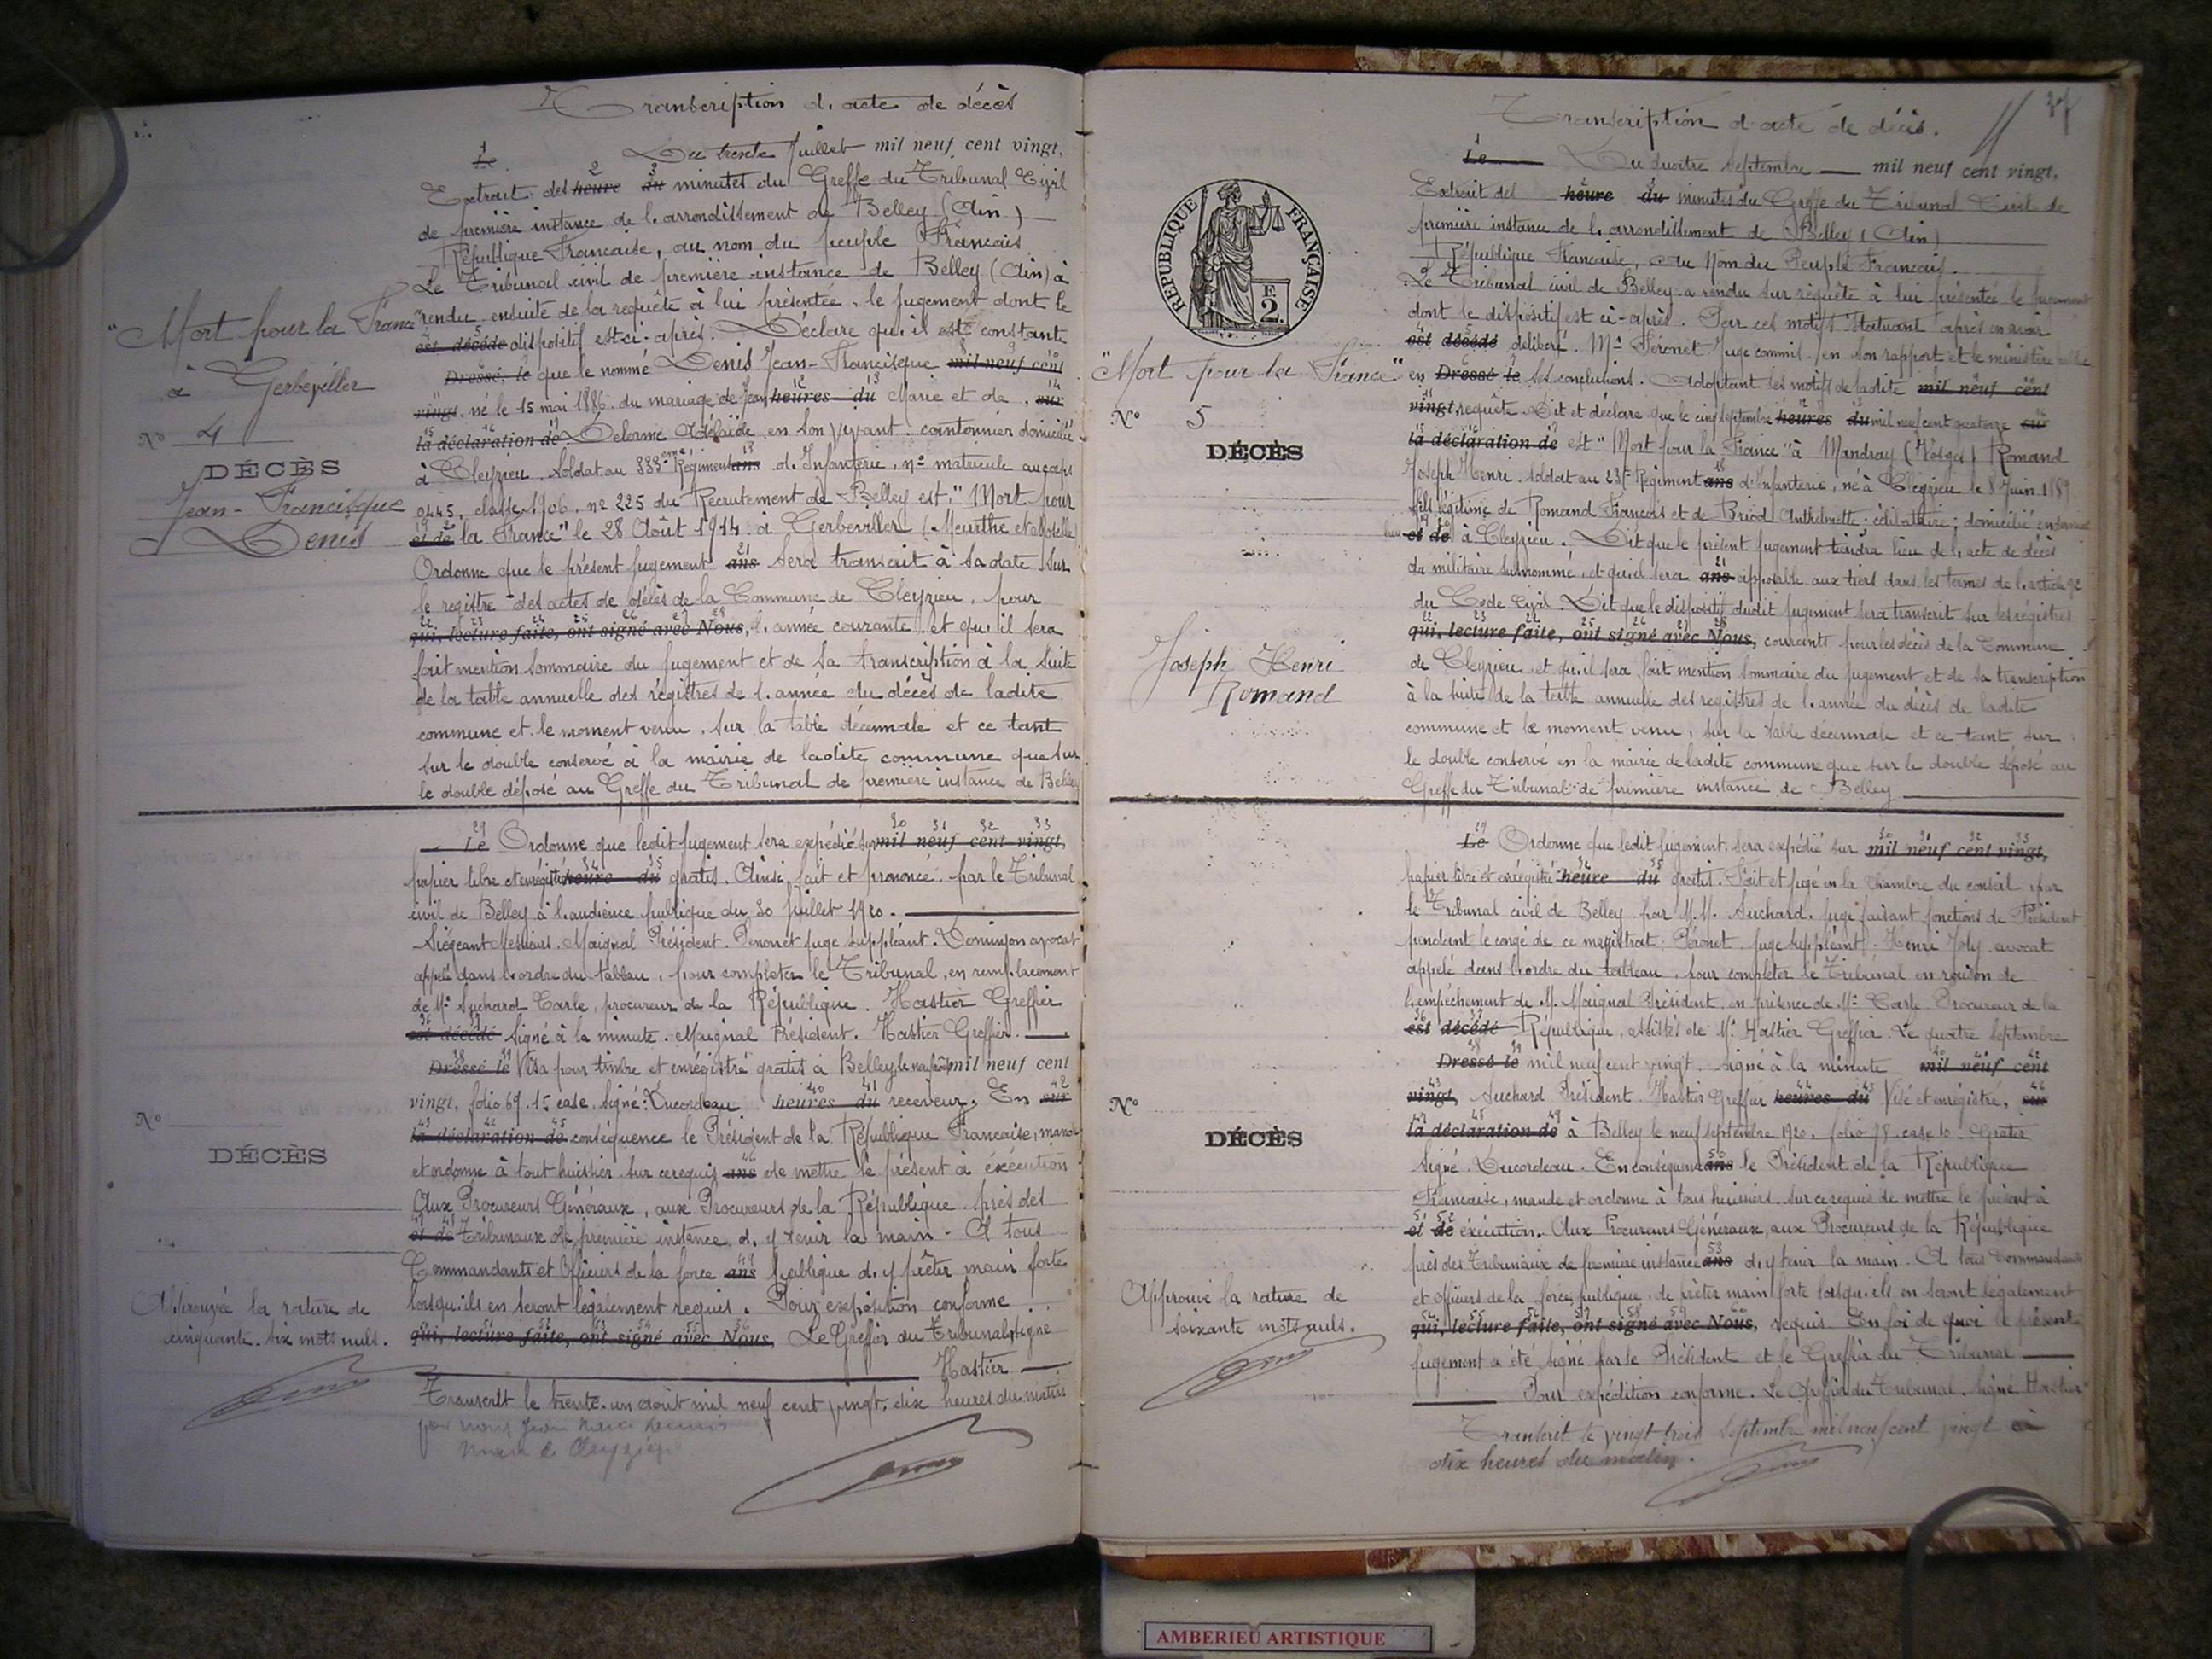 Transcription d'acte de décès
Le Du trente Juillet mil neuf cent vingt,
Extrait des heure du minutes du Greffe du Tribunal Civil
de première instance de l'arrondissement de Belley (Ain)
République Française, au nom du peuple Français
Le Tribunal civil de première instance de Belley (Ain) a
rendu ensuite de la requête à lui présentée, le jugement dont le
est décédé dispositif est ci-après. Déclare qu'il est constante
Dressé, le que le nommé Denis Jean-Francisque mil neuf cent
vingt, né le 15 mai 1886 du mariage de Jean heures du Marie et de sur
la déclaration de Delorme Adélaïde, en son vivant cantonnier domicilié
à Cleyzieu, Soldat au 333eme Régiment ans d'Infanterie, no matricule au corps
0445, classe 1906, no 225 du Recrutement de Belley est "Mort pour
et de la France" le 28 Août 1914 à Gerberviller (Meurthe et Moselle)
Ordonne que le présent jugement ans sera transcrit à sa date sur
le registre des actes de décès de la Commune de Cleyzieu, pour
qui, lecture faite, ont signé avec Nous, l'année courante et qu'il sera
fait mention sommaire du jugement et de sa transcription à la suite
de la table annuelle des régistres de l'année du décès de ladite
commune et le moment venu, sur la table décennale et ce tant
sur le double conservé à la mairie de ladite commune que sur
le double déposé au Greffe du Tribunal de première instance de Belley
"Mort pour la France"
à Gerbeviller
No 4
DÉCÈS
Jean-Francisque
Denis
Le Ordonne que ledit jugement sera expédié sur mil neuf cent vingt,
papier libre et enrégistré heure du gratis. Ainsi fait et prononcé par le Tribunal
civil de Belley à l'audience publique du 30 Juillet 1920.
Siégeant Messieurs Maignal Président. Penonet juge suppléant. Deminjon avocat
appelé dans l'ordre du tableau, pour completer le Tribunal, en remplacement
de Mr Suchard Carle, procureur de la République. Hastier Greffier
est décédé Signé à la minute. Maignal Président. Hastier Greffier.
Dressé le Visa pour timbre et enrégistré gratis à Belley, le neuf août mil neuf cent
vingt, folio 69, 1e case, signé: Ducordeau heures du receveur. En sur
la déclaration de conséquence le Président de la République Française, mande
et ordonne à tout huissier sur ce requis ans de mettre le présent à éxécution
Aux Procureurs Généraux, aux Procureurs de la République près des
et de Tribunaux de première instance, d'y tenir la main - A tous
Commandants et Officiers de la force ans publique d'y prêter main forte
lorsqu'ils en seront légalement requis. Pour expédition conforme
qui, lecture faite, ont signé avec Nous, Le Greffier du Tribunal, signé
Hastier
Transcrit le trente-un août mil neuf cent vingt, dix heures du matin
par nous Jean Marie
maire de Cleyzieu
No
DÉCÈS
Approuvé la rature de
cinquante-six mots nuls.
Transcription d'acte de décès.
Le Du quatre Septembre mil neuf cent vingt,
Extrait des heure du minutes du Greffe du Tribunal Civil de
première instance de l'arrondissement de Belley (Ain)
République Française, au Nom du Peuple Français.
Le Tribunal civil de Belley a rendu sur requête à lui présentée le jugement
dont le dispositif est ci-après. Par ces motifs Statuant après en avoir
est décédé délibéré. Mr Péronet Juge commis en son rapport et le ministère
en Dressé le ses conclusions. Adoptant les motifs de ladite mil neuf cent
vingt, requête. Dit et déclare que le cinq septembre heures du mil neuf cent quatorze sur
la déclaration de est "Mort pour la France" à Mandray (Vosges) Romand
Joseph Henri, soldat au 23e Régiment ans d'Infanterie, né à Cleyzieu le 8 Juin 1889
fils légitime de Romand François et de Briod Anthelmette; célibataire; domicilié en dernier
lieu et de à Cleyzieu. Dit que le présent jugement tiendra lieu de l'acte de décès
du militaire susnommé, et qu'il sera ans opposable aux tiers dans les termes de l'article 92
du Code Civil. Dit que le dispositif dudit jugement sera transcrit sur les régistres
qui, lecture faite, ont signé avec Nous, courants pour les décès de la Commune
de Cleyzieu, et qu'il sera fait mention sommaire du jugement et de sa transcription
à la suite de la table annuelle des registres de l'année du décès de ladite
commune et le moment venu, sur la table décennale et ce tant sur
le double conservé en la mairie de ladite commune que sur le double déposé au
Greffe du Tribunal de première instance de Belley
RÉPUBLIQUE FRANÇAISE
F.
2.
"Mort pour la France"
No 5
DÉCÈS
Joseph Henri
Romand
Le Ordonne que ledit jugement sera expédié sur mil neuf cent vingt,
papier libre et enrégistré heure du gratis. Fait et jugé en la Chambre du conseil par
le Tribunal civil de Belley par M.M. Suchard, juge faisant fonctions de Président
pendant le congé de ce magistrat; Péronet juge suppléant; Henri Joly avocat
appelé dans l'ordre du tableau, pour completer le Tribunal en raison de
l'empêchement de M. Maignal Président, en présence de Mr Carle Procureur de la
est décédé République, assistés de Mr Hastier Greffier. Le quatre septembre
Dressé le mil neuf cent vingt. Signé à la minute mil neuf cent
vingt, Suchard Président. Hastier Greffier heures du Visé et enregistré, sur
la déclaration de à Belley le neuf septembre 1920, folio 78, case 10. Gratis
Signé. Ducordeau. En conséquence ans le Président de la République
Française, mande et ordonne à tous huissiers sur ce requis de mettre le présent à
et de éxécution. Aux Procureurs Généraux, aux Procureurs de la République
près des Tribunaux de première instance ans d'y tenir la main. A tous Commandants
et officiers de la force publique de prêter main forte lorsqu'ils en seront légalement
qui, lecture faite, ont signé avec Nous, requis. En foi de quoi le présent
jugement a été signé par le Président et le Greffier du Tribunal
Pour expédition conforme. Le Greffier du Tribunal. Signé Hastier
Transcrit le vingt trois Septembre mil neuf cent vingt à
dix heures du matin.
No
DÉCÈS
Approuvé la rature de
soixante mots nuls.
AMBERIEU ARTISTIQUE